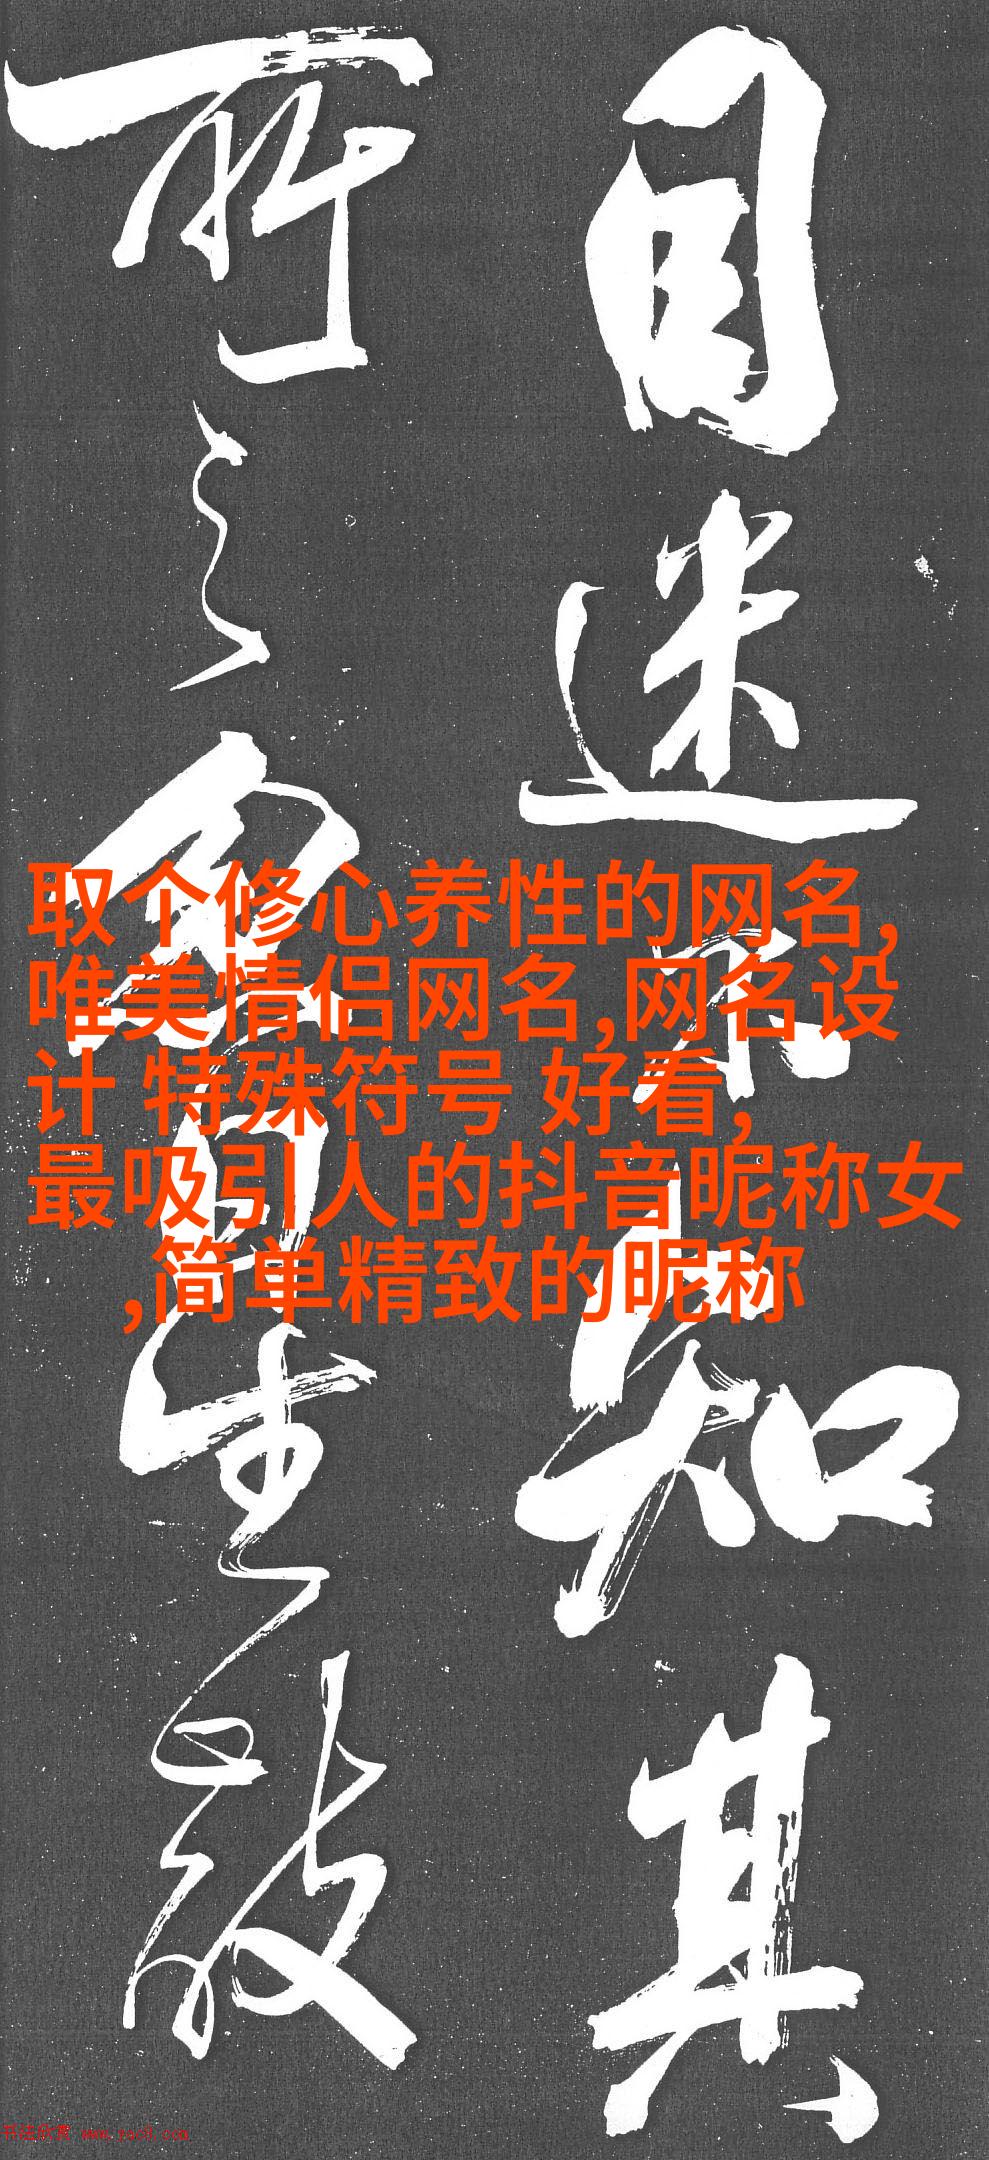 目迷不知其
所之忽自生敲
取个修心养性的网名,
唯美情侣网名,网名设
计 特殊符号 好看,
最吸引人的抖音昵称女
,简单精致的昵称
书法欣赏 www.